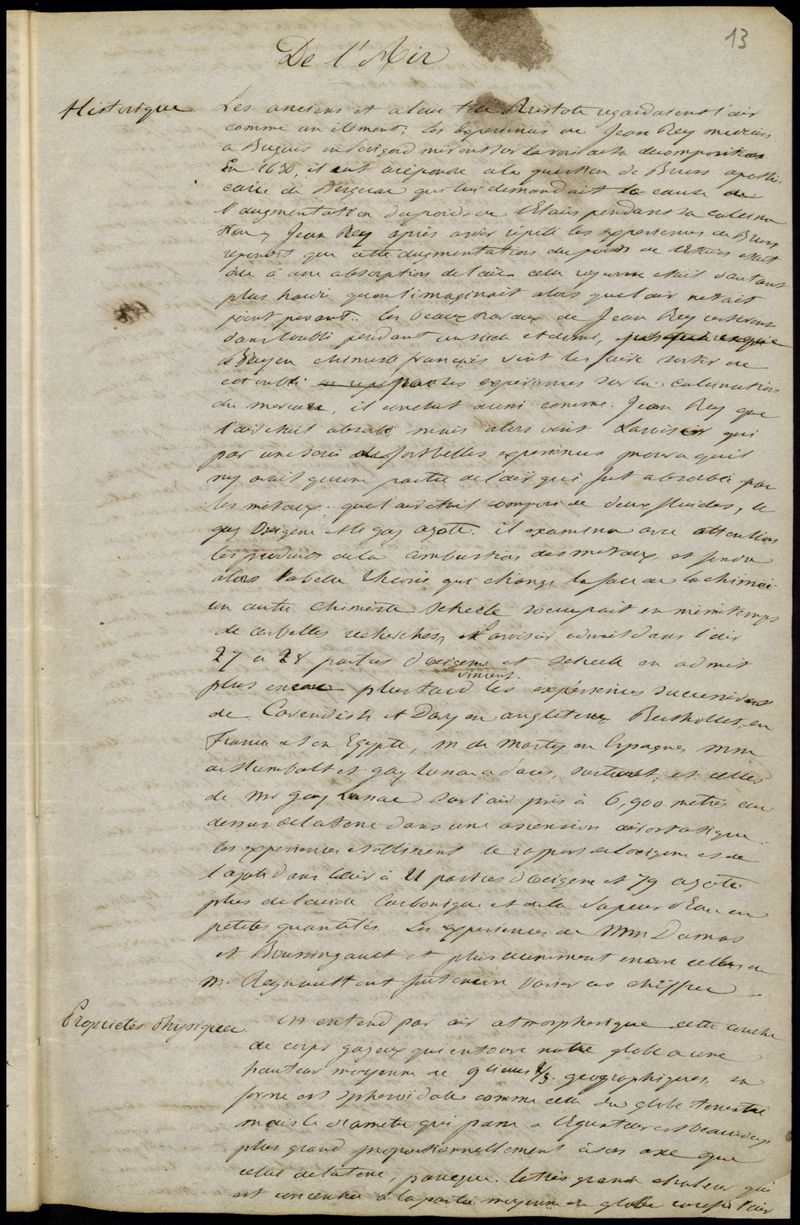 13
De l'Air
Historique
Les anciens et a leur tête Aristote regardaient l'air
comme un élément, les expériences de Jean Rey médecin
a Bugues en Périgord mirent sur la voie de la décomposition
En 1630, il eut a répondre a la question de Brun apothi-
caire de Bergerac qui lui demandait la cause de
l'augmentation du poids de l'étain pendant sa calcina
tion, Jean Rey après avoir répété les expériences de Brun
répondit que cette augmentation du poids de l'étain était
due à une absorption de l'air cela était d'autant
plus hardi qu'on s'imaginait alors que l'air n'était
point pesant. les beaux travaux de Jean Rey restèrent
dans l'oubli pendant un siècle et demi,
Bayen chimiste français vint les faire sortir de
cet oubli par ses expériences sur la calcination
du mercure, il conclut aussi comme Jean Rey que
l'air était absorbé mais alors vint Lavoisier qui
par une série de fort belles expériences prouva qu'il
n'y avait qu'une partie de l'air qui fut absorbée par
les métaux, que l'air était composé de deux fluides, le
gaz oxigène et le gaz azote. il examina avec attention
les produits de la combustion des métaux et fonda
alors la belle théorie qui changea la face de la chimie
un autre chimiste Scheele s'occupait en même temps
de ces belles recherches, Lavoisier admit dans l'air
27 a 28 parties d'oxigène et Scheele en admit
vinrent
plus encore plus tard les expériences successives
de Cavendish et Davy en angleterre, Berthollet, en
France et en Egypte, M de Marty en Espagne, MM
de Humbolt et gay lussac a Paris, surtout, et celles
de Mr Gay Lussac sur l'air pris à 6,900 mètres au
dessus de la terre dans une ascension aérostatique.
les expériences établirent le rapport de l'oxigène et de
l'azote dans l'air à 21 parties d'oxigène et 79 azote
plus de l'acide Carbonique et de la vapeur d'Eau en
petites quantités. Les expériences de MM Dumas
et Boussingault et plus récemment encore celles de
M. Regnault ont fait encore varier ces chiffres
Propriétés Physiques.
On entend par air atmosphérique cette couche
de corps gazeux qui entoure notre globe a une
hauteur moyenne de 9 lieues 1/3 géographiques, sa
forme est sphéroïdale comme celle du globe terrestre
mais le diamètre qui passe a l'Equateur est beaucoup
plus grand proportionnellement à son axe que
celui de la terre, parceque la très grande chaleur qui
est concentrée a la partie moyenne du globe l'air